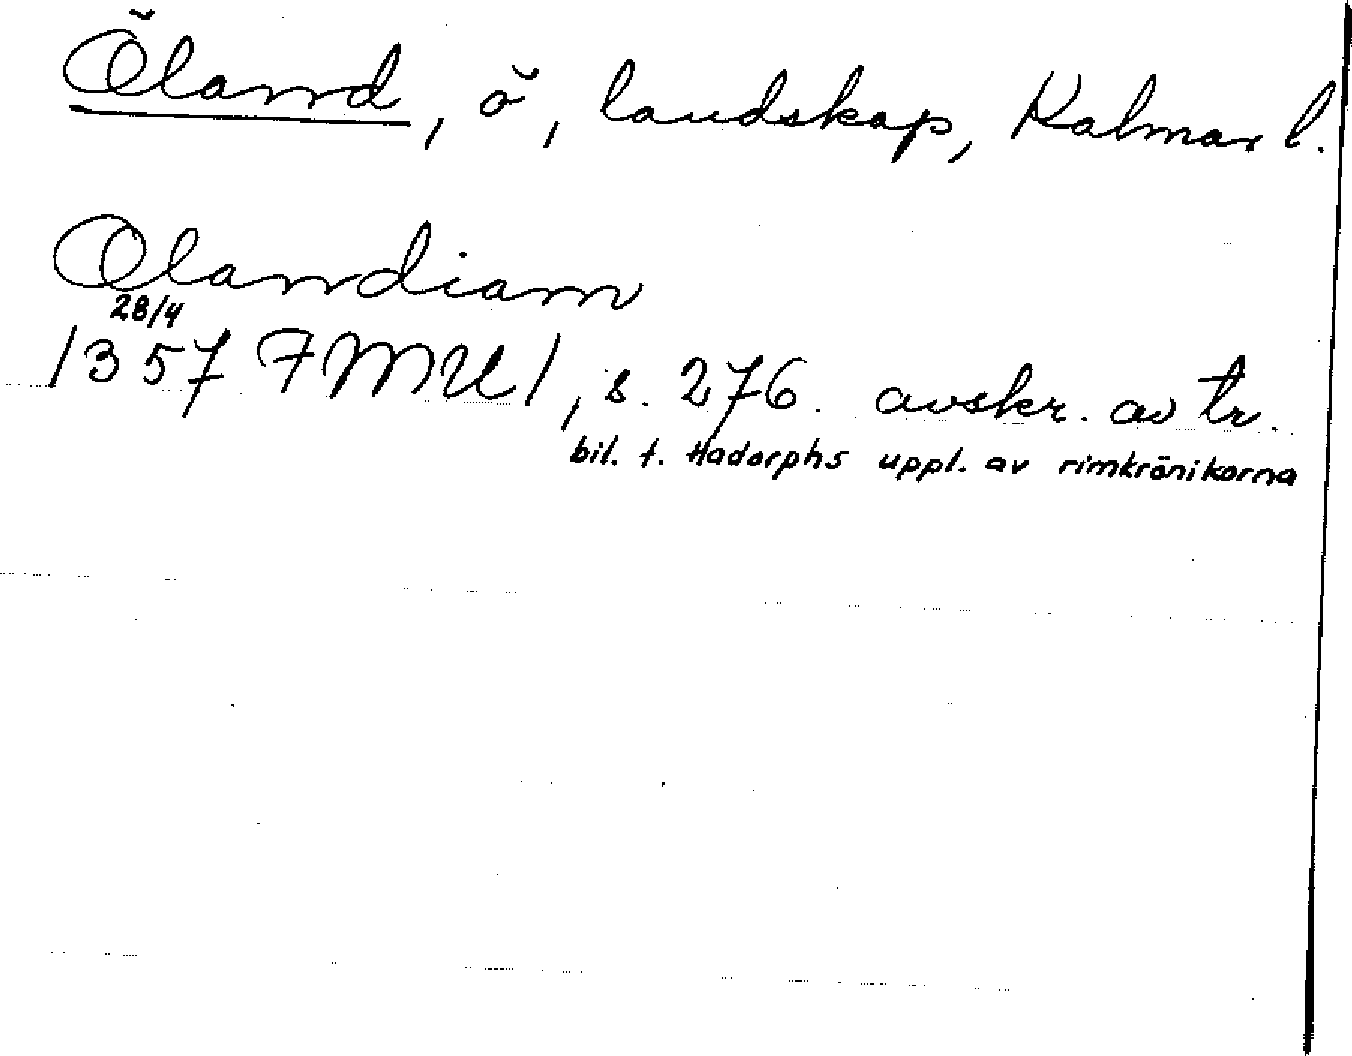 Öland, ö, landskap, Kalmar l.
Olandiam
28/4
1357 FMU 1, s. 276. avskr. av tr.
bil. t. Hadorphs uppl. av rimkrönikorna